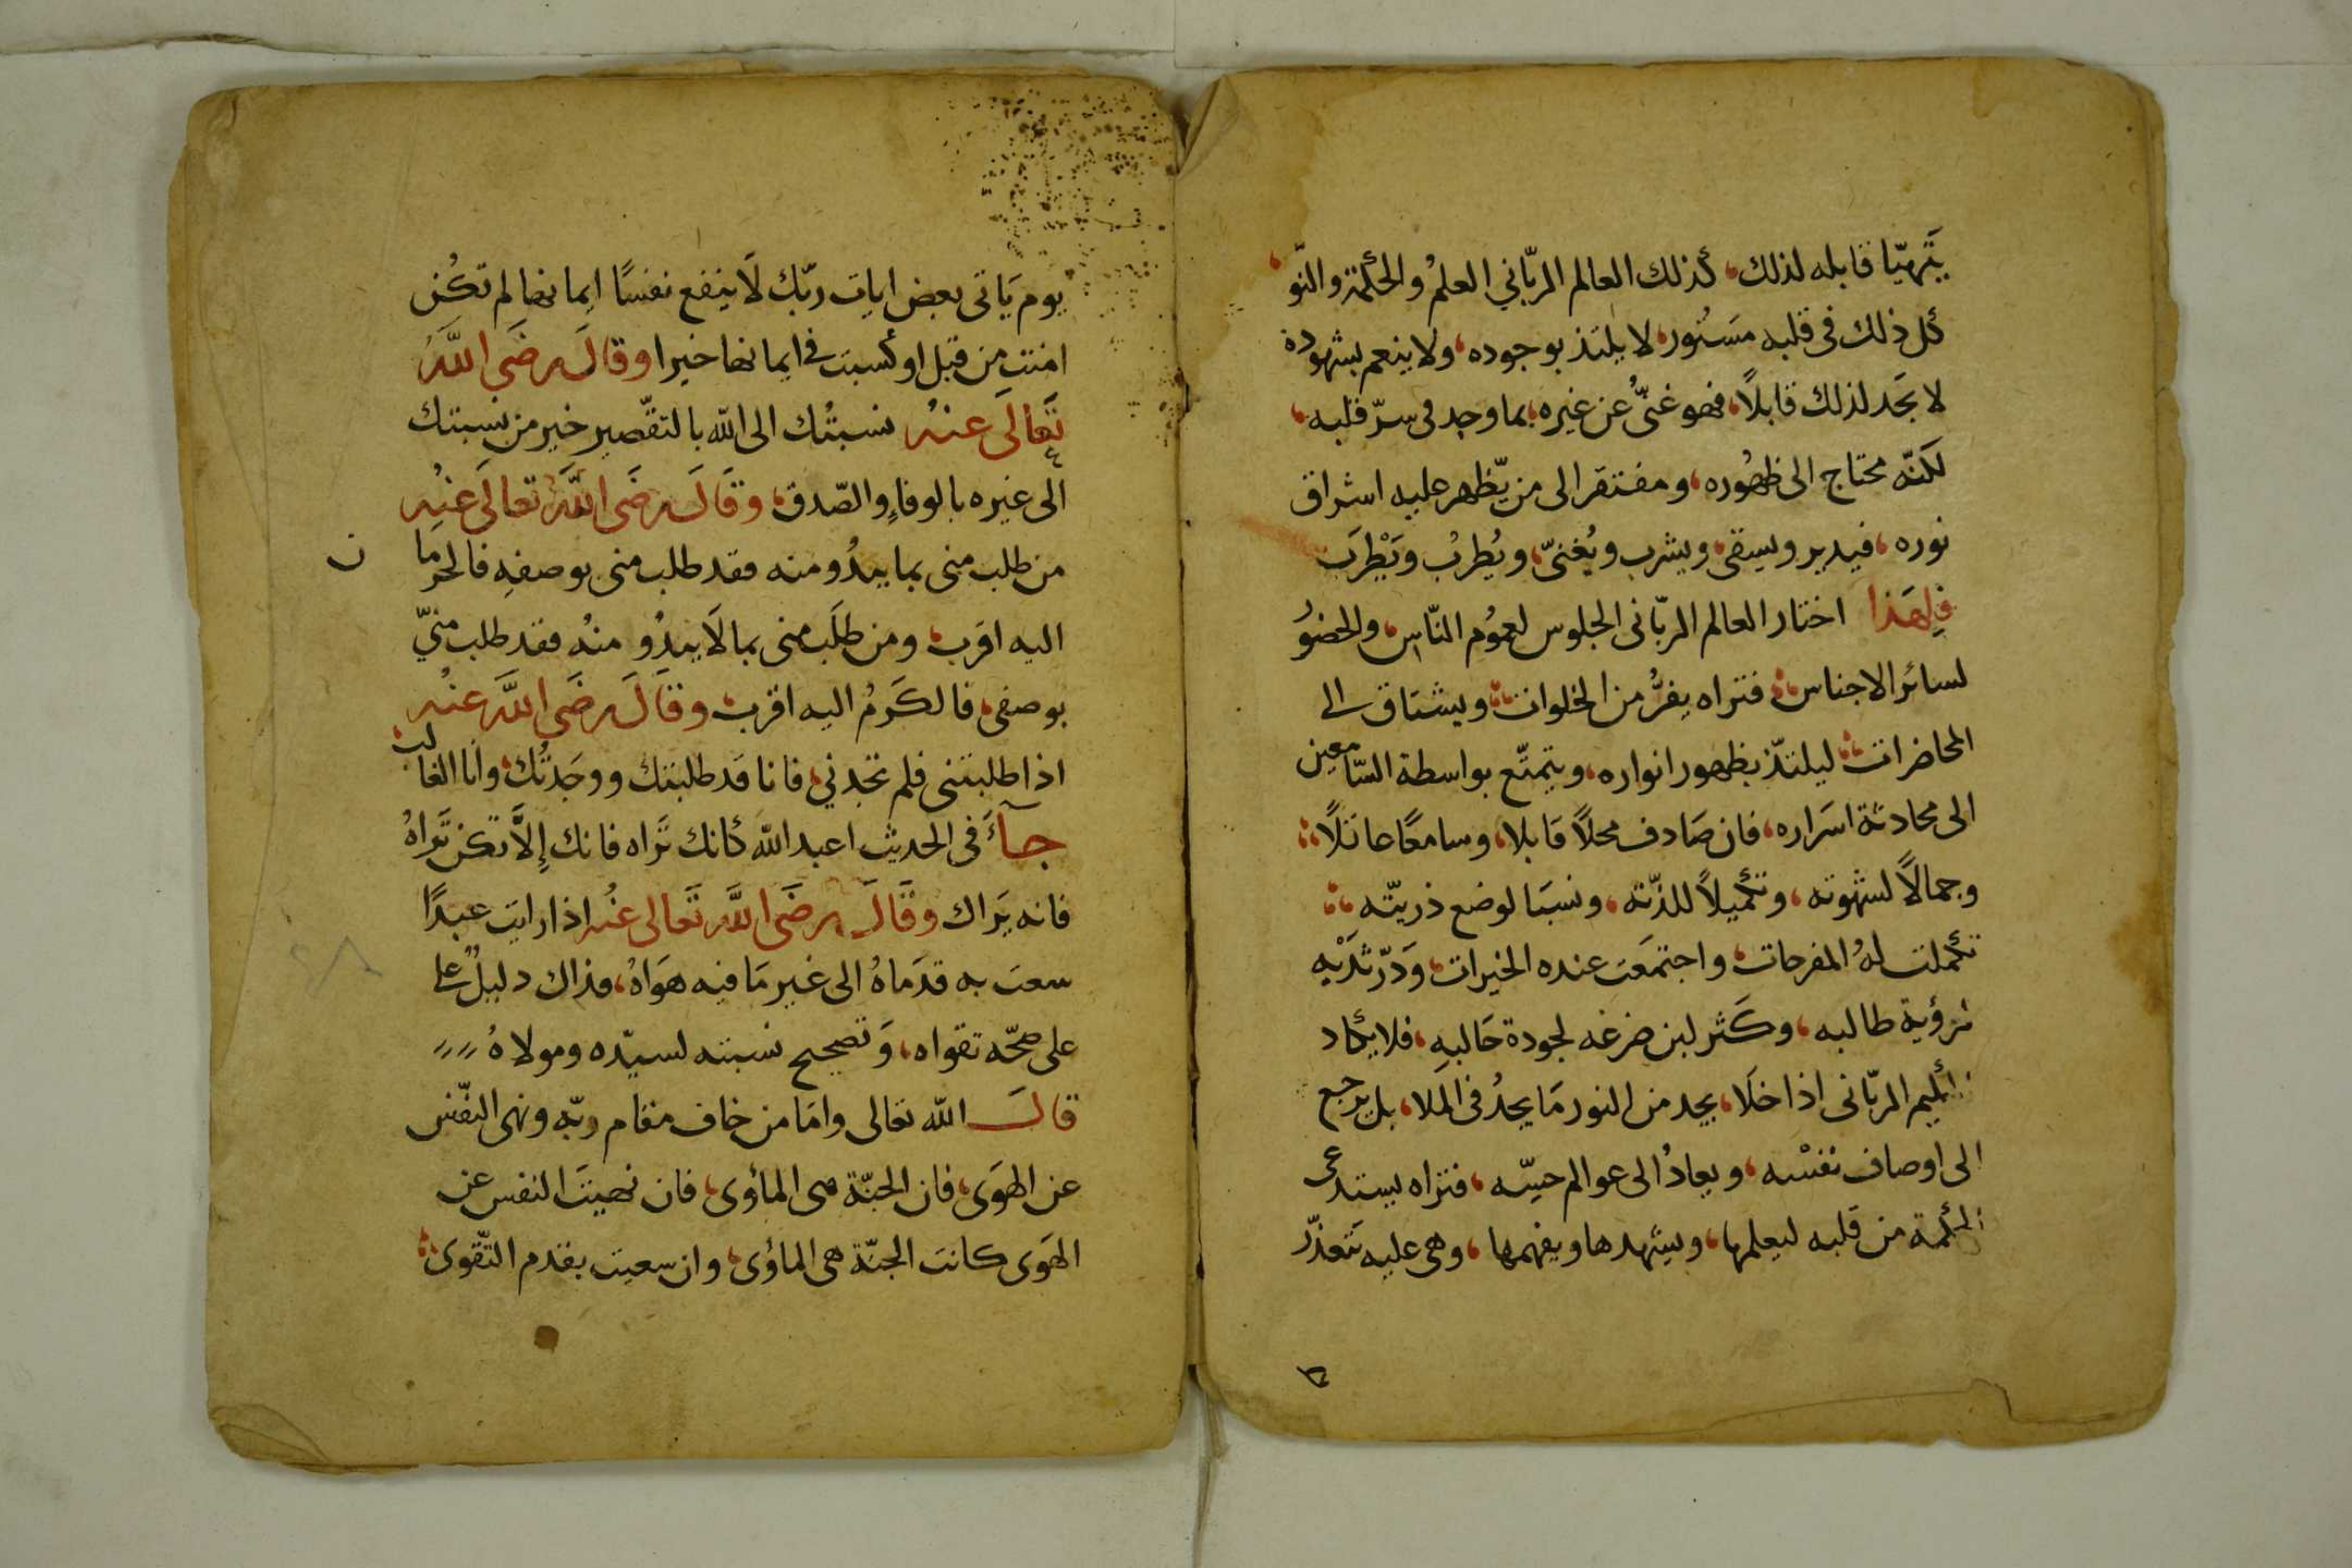 يَتَهيّا قابله لذلك، كذلك العالم الربّاني العلمُ والحكمة والنّو
كل ذلك فى قلبه مسَتُور، لا يلتذ بوجوده، ولا ينعم بشهوده
لا يجَد لذلك قابلاً، فهو غنىٌّ عن غيره، بما وجد فى سرّ قلبه،
لكنّه محتاج الى ظهُوره، ومفتقر الى من يّظهر عليه اشراق
نوره، فيدير ويسقى، ويشرب ويُغنىّ، ويُطربُ ويَطْرَب
فلِهَذا اختار العالم الربّانى الجلوس لعمُوم النّاس، والحضوُ
لسائر الاجناس، فتراه يفرُّ من الخلوات، ويشتاق الى
المحاضرات، ليلتذّ بظهور انواره، ويتمتّع بواسطة السّامعين
الى محادثة اسَراره، فان صَادف محلاً قابلا، وسامعًا عاقلاً
وجمالاً لشهوته، وتكميلاً للذّته، ونسبَا لوضع ذريّته
تكملت لهُ المفرحات، واجتمعَت عنده الخيرات، وَدَرّ ثدَيْه
لرؤية طالبه، وكَثر لبن ضرغه لجودة حَالبهِ، فلا يكاد
الربّانى اذا خلَا، يجد من النور مَا يجدُ فى الملا، بل يرجع
الى اوصاف نفسْه، ويعادُ الى عوالم حسّه، فتراه يستدعى
الحكمة من قلبه ليعلمها، ويشهدها ويفهمها، وهى عليه تتعذّر
يوم يَاتى بعض ايات ربّك لَا ينفع نفسًا ايمانها لم تكُن
امنت من قبل او كسبت فى ايمانها خيرا وقالَ رضَى اللهَُ
تَعالَى عنهُ نسبتُك الى الله بالتقصير خير من نسبتك
الى غيره بالوفاءِ والصّدق، وقَالَ رضَى اللهَُ تعالَى عنهُ
من طلب منى بما يبدُو منه فقد طلب منى بوصفهِ فالحرما
ن
اليه اقرب، ومن طلَب منى بما لَا يبدُو منهُ فقد طلب منيّ
بوصفى، فالكَرمُ اليه اقرب، وقَالَ رضَى اللهَ عنهُ
اذا طلبتنى فلم تجدني، فانا قد طلبتك ووجَدتُك، وانَا الغالب
جآءَ فى الحديث اعبد الله كأنك تَراه فانك إلاَّ تكن تَراهُ
فانه يَراك وقَالَ رضَى اللهَُ تَعالى عنهُ اذا رايت عبدًا
سعت به قدمَاهُ الى غير مَا فيه هوَاهُ، فذاك دليلٌ على
على صحّه تقواه، وَتصحيح نسبته لسيّده ومولاهُ
قالَ الله تعالى وامَا من خاف مقام ربّه ونهى النفّس
عن الهوَى، فان الجنّة هى المأوى، فان نهيتَ النفس عن
الهَوى كانت الجنّة هى الماوُى، وان سعيت بقدم التّقوى